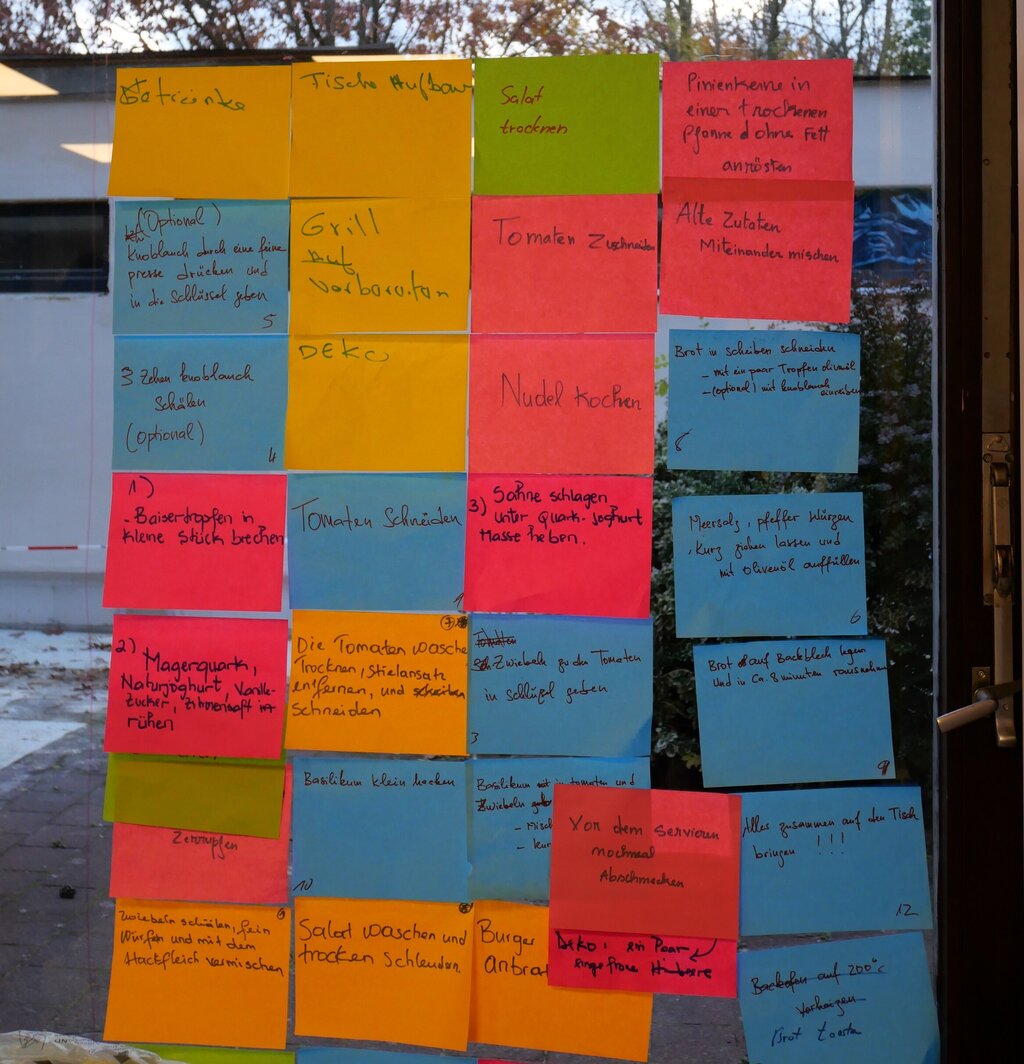 Getränke
Tische Aufbau
Salat
trocknen
Pinienkerne in
einer trockenen
Pfanne ohne Fett
anrösten
(Optional)
Knoblauch durch eine feine
presse drücken und
in die Schlüssel geben
5
Grill
auf
Vorbaraitan
Tomaten Zuschneiden
Alle Zutaten
Miteinander mischen
3 Zehen Knoblauch
Schälen
(Optional)
4
DEKO
Nudel Kochen
Brot in Scheiben schneiden
- mit ein paar Tropfen olivenöl
- (optional) mit knoblauch
einreiben
8
1)
- Baisertropfen in
kleine Stück brechen
Tomaten Schneiden
1
3) Sahne schlagen
unter Quark-Joghurt
Masse heben.
Meersalz, pfeffer würzen
, kurz ziehen lassen und
mit Olivenöl auffüllen
6
2) Magerquark,
Naturjoghurt, Vanille-
zucker, Zitronensaft in
rühen
Die Tomaten wasche
Trocknen, Stielansatz
entfernen, und scheiben
schneiden
Tomaten
Zwiebeln zu den Tomaten
in schlüßel geben
3
Brot auf Backblech legen
Und in Ca. 8 minuten rausnehm
9
Zerrupfen
Basilikum klein hacken
10
Basilikum mit in tomaten und
Zwiebeln
- Misch
Vor dem Servieren
nochmal
Abschmecken
Alles zusammen auf den Tisch
bringen !!!
12
Zwiebeln schälen, fein
Würfen und mit dem
Hackfleich vermischen
Salat waschen und
trocken Schleudern
Burger
anbrat
Deko: ein Paar
eingefrone Himbeere
Backofen auf 200°c
Vorheizen
Brot toasta